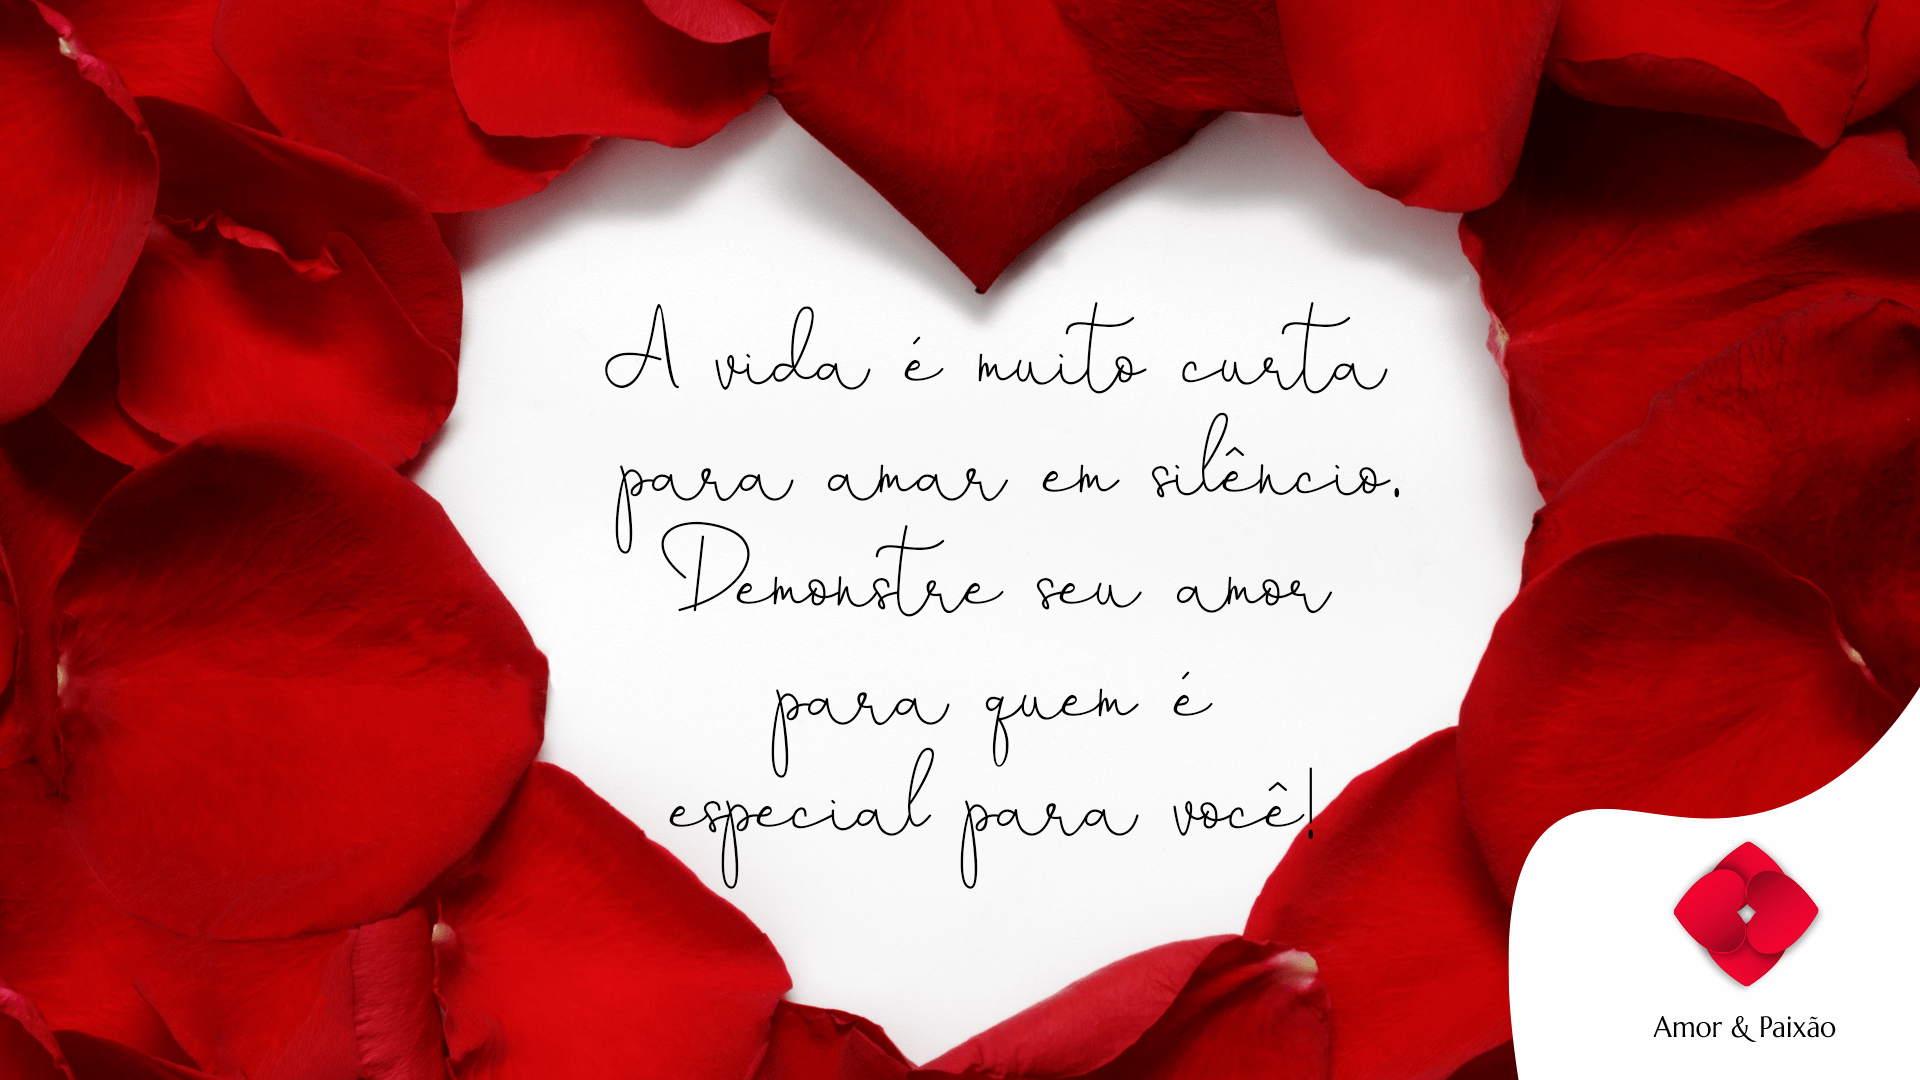 A vida é muito curta
para amar em silêncio.
Demonstre seu amor
para quem é
especial para você!
Amor & Paixão